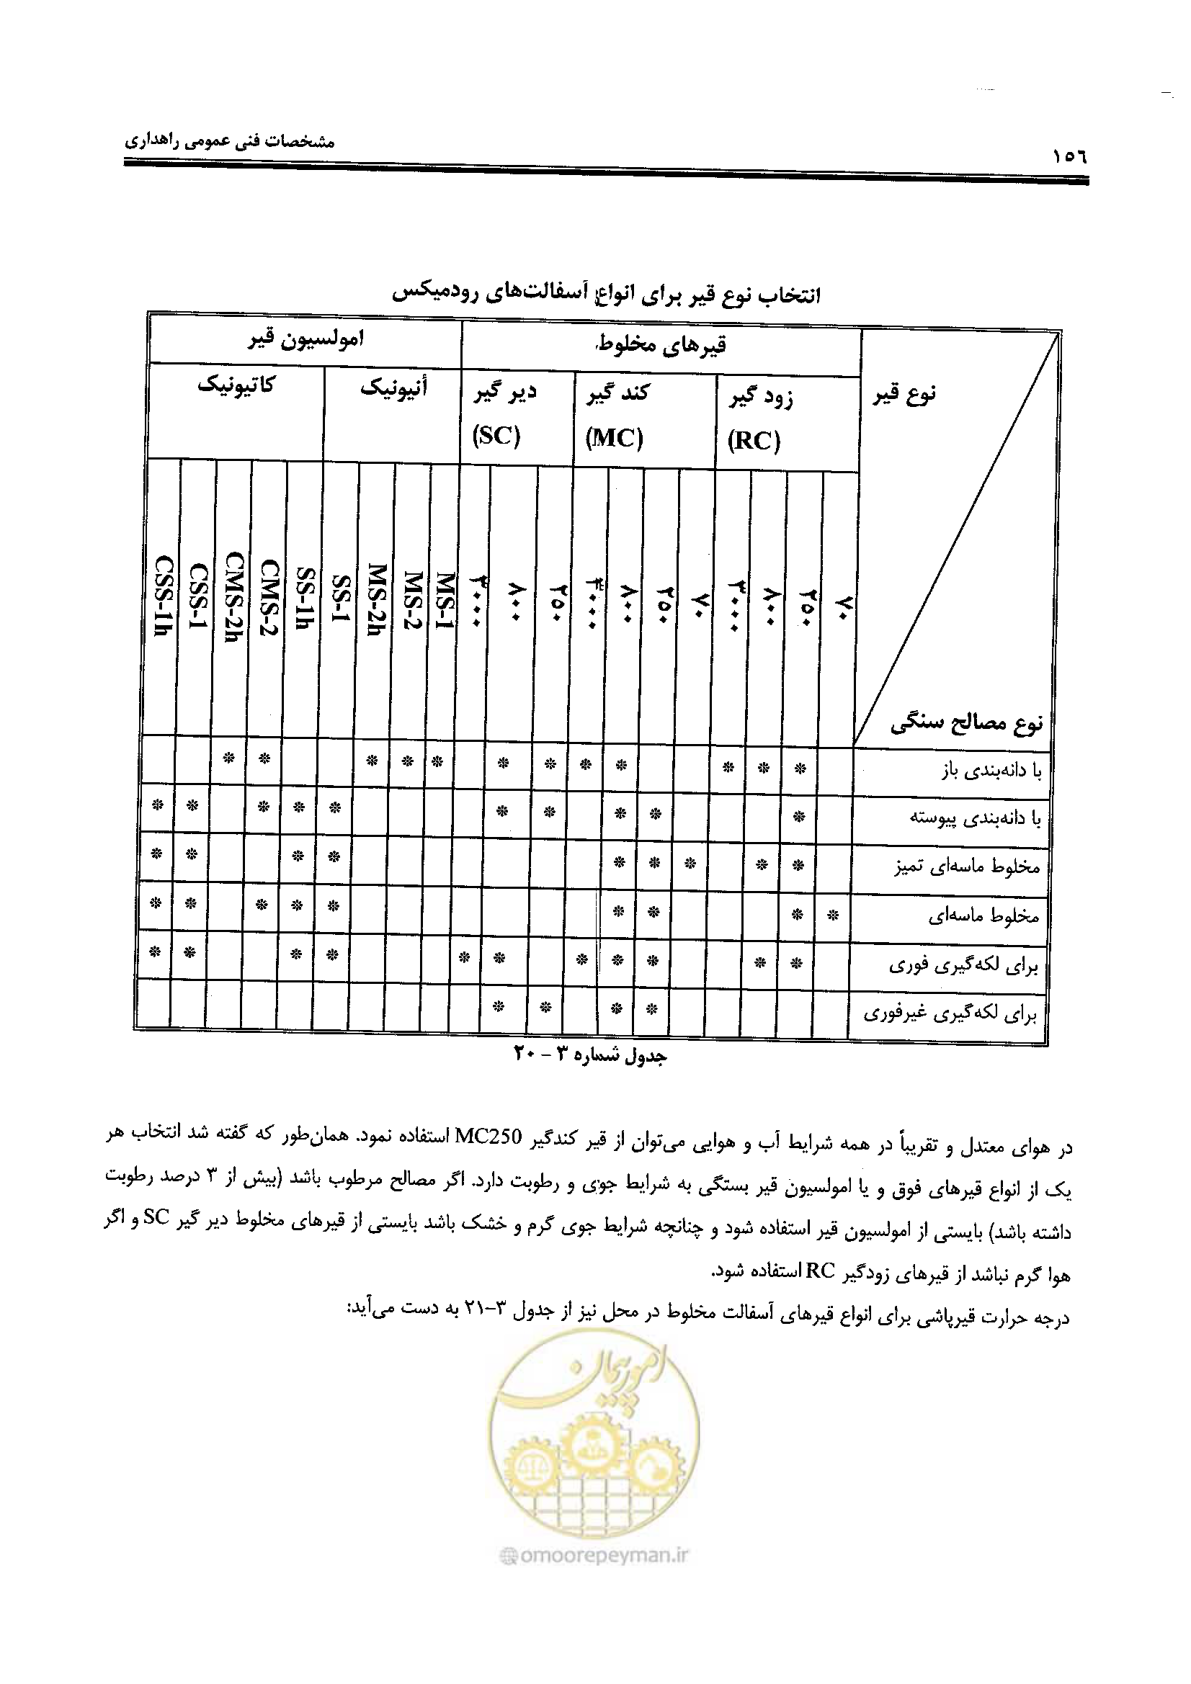 ۱۵۶
مشخصات فنی عمومی راهداری
انتخاب نوع قیر برای انواع آسفالت‌های رودمیکس
نوع قیر
قیرهای مخلوط
امولسیون قیر
زود گیر
(RC)
کند گیر
(MC)
دیر گیر
(SC)
أنیونیک
کاتیونیک
نوع مصالح سنگی
۷۰ ۲۵۰ ۸۰۰ ۳۰۰۰ ۷۰ ۲۵۰ ۸۰۰ ۳۰۰۰ ۲۵۰ ۸۰۰ ۳۰۰۰ MS-1 MS-2 MS-2h SS-1 SS-1h CMS-2 CMS-2h CSS-1 CSS-1h
با دانه‌بندی باز * * * * * * * * * * * *
با دانه‌بندی پیوسته * * * * * * * * * *
مخلوط ماسه‌ای تمیز * * * * * * * * *
مخلوط ماسه‌ای * * * * * * * * *
برای لکه‌گیری فوری * * * * * * * * * * *
برای لکه‌گیری غیرفوری * * * *
جدول شماره ۳ – ۲۰
در هوای معتدل و تقریباً در همه شرایط آب و هوایی می‌توان از قیر کندگیر MC250 استفاده نمود. همان‌طور که گفته شد انتخاب هر
یک از انواع قیرهای فوق و یا امولسیون قیر بستگی به شرایط جوی و رطوبت دارد. اگر مصالح مرطوب باشد (بیش از ۳ درصد رطوبت
داشته باشد) بایستی از امولسیون قیر استفاده شود و چنانچه شرایط جوی گرم و خشک باشد بایستی از قیرهای مخلوط دیر گیر SC و اگر
هوا گرم نباشد از قیرهای زودگیر RC استفاده شود.
درجه حرارت قیرپاشی برای انواع قیرهای آسفالت مخلوط در محل نیز از جدول ۳-۲۱ به دست می‌آید:
امور پیمان
@omoorepeyman.ir